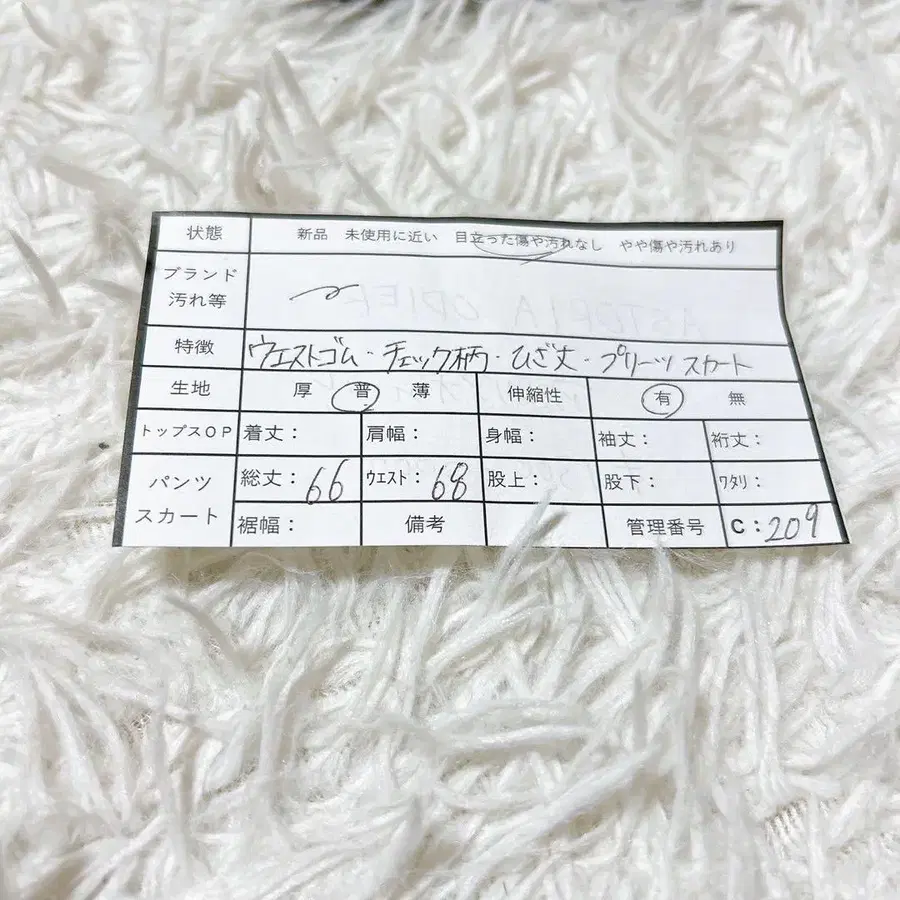 状態 新品 未使用に近い 目立った傷や汚れなし やや傷や汚れあり
ブランド
汚れ等
特徴 ウエストゴム・チェック柄・ひざ丈・プリーツスカート
生地 厚 普 薄 伸縮性 有 無
トップスOP 着丈: 肩幅: 身幅: 袖丈: 裄丈:
パンツ 総丈:66 ウエスト:68 股上: 股下: ワタリ:
スカート 裾幅: 備考 管理番号 C:209